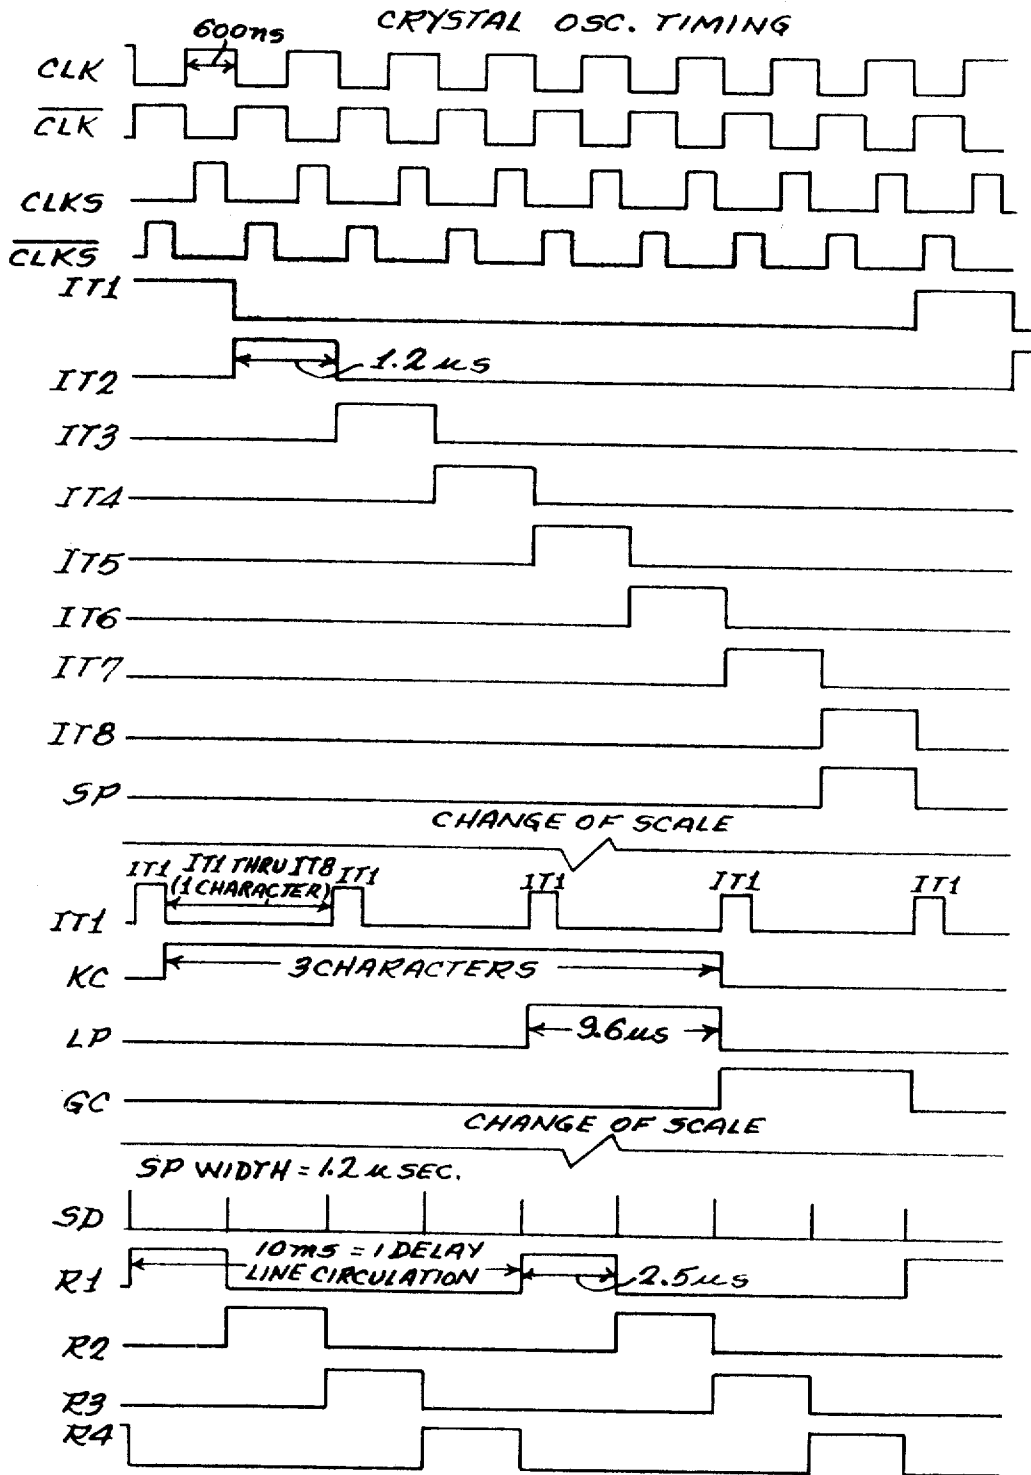 CRYSTAL OSC. TIMING
600ns
CLK
C̅L̅K̅
CLKS
C̅L̅K̅S̅
IT1
IT2
1.2 us
IT3
IT4
IT5
IT6
IT7
IT8
SP
CHANGE OF SCALE
IT1 IT1 THRU IT8 IT1 IT1 IT1 IT1
(1 CHARACTER)
IT1
KC
3 CHARACTERS
LP
9.6us
GC
CHANGE OF SCALE
SP WIDTH = 1.2 u SEC.
SP
10ms = 1 DELAY
LINE CIRCULATION
R1
2.5us
R2
R3
R4